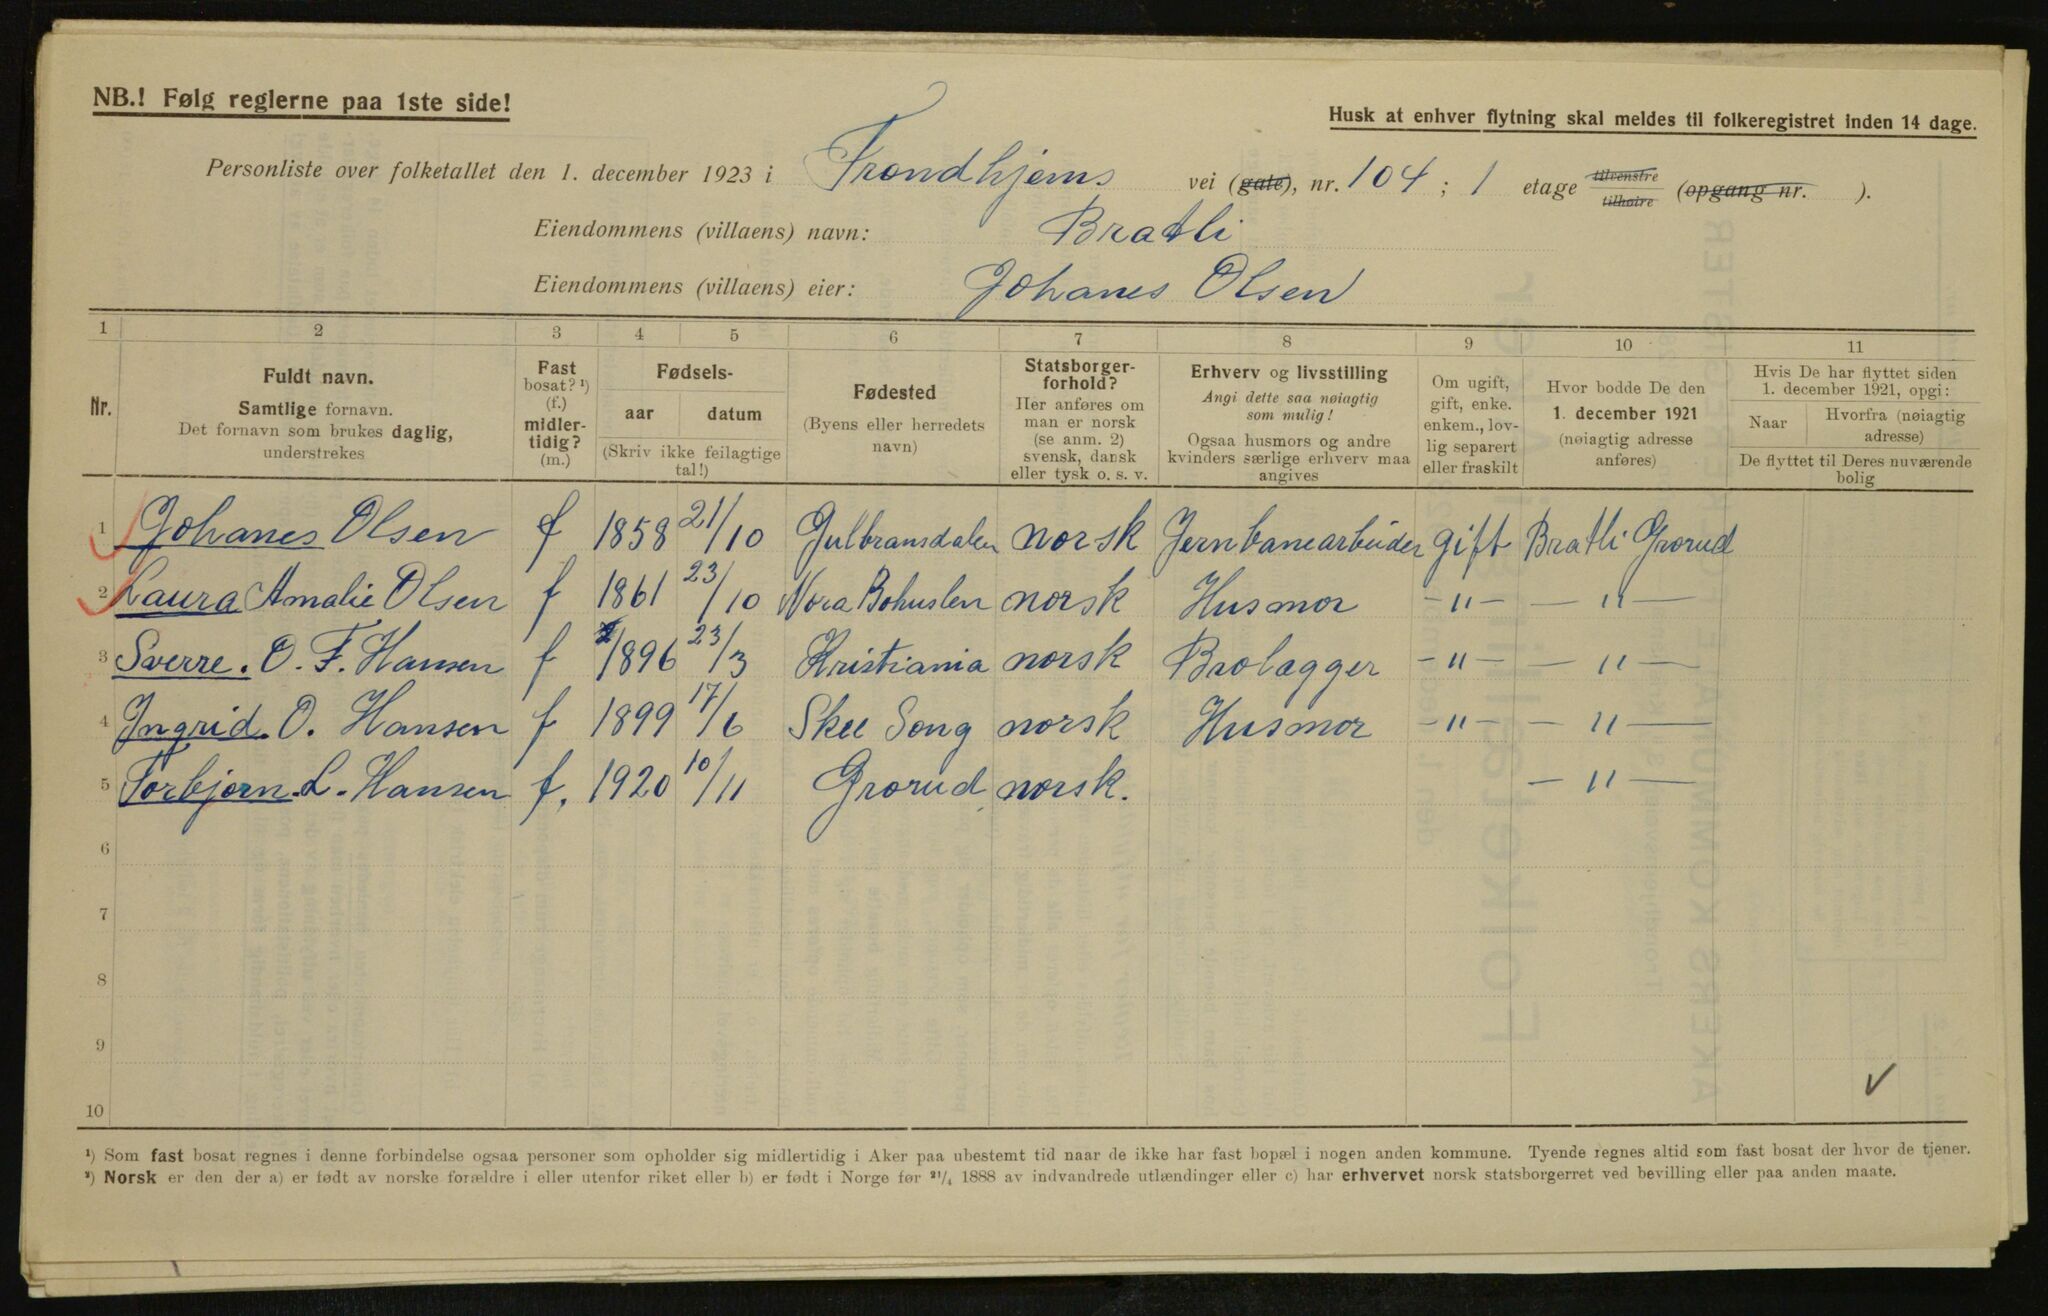 NB.! Følg reglerne paa 1ste side!
Husk at enhver flytning skal meldes til folkeregistret inden 14 dage.
Personliste over folketallet den 1. december 1923 i Trondhjems vei (gate), nr. 104 ; 1 etage tilvenstre tilhøire (opgang nr. ).
Eiendommens (villaens) navn: Bratli
Eiendommens (villaens) eier: Johanes Olsen
1 2 3 4 5 6 7 8 9 10 11
Nr.
Fuldt navn.
Samtlige fornavn.
Det fornavn som brukes daglig,
understrekes
Fast
bosat? ¹)
(f.)
midler-
tidig?
(m.)
Fødsels-
aar datum
(Skriv ikke feilagtige
tal!)
Fødested
(Byens eller herredets
navn)
Statsborger-
forhold?
Her anføres om
man er norsk
(se anm. 2)
svensk, dansk
eller tysk o. s. v.
Erhverv og livsstilling
Angi dette saa nøiagtig
som mulig!
Ogsaa husmors og andre
kvinders særlige erhverv maa
angives
Om ugift,
gift, enke.
enkem., lov-
lig separert
eller fraskilt
Hvor bodde De den
1. december 1921
(nøiagtig adresse
anføres)
Hvis De har flyttet siden
1. december 1921, opgi:
Naar Hvorfra (nøiagtig
adresse)
De flyttet til Deres nuværende
bolig
1 Johanes Olsen f 1858 21/10 Gulbransdalen norsk Jernbanearbeider gift Bratli Grorud
2 Laura Amalie Olsen f 1861 23/10 Nora Bohuslen norsk Husmor -"- -"-
3 Sverre. O. F. Hansen f 1896 23/3 Kristiania norsk Brolægger -"- -"-
4 Ingrid. O. Hansen f 1899 17/6 Skee Song norsk Husmor -"- -"-
5 Torbjørn. L. Hansen f. 1920 10/11 Grorud norsk. -"-
6
7
8
9
10
¹) Som fast bosat regnes i denne forbindelse ogsaa personer som opholder sig midlertidig i Aker paa ubestemt tid naar de ikke har fast bopæl i nogen anden kommune. Tyende regnes altid som fast bosat der hvor de tjener.
²) Norsk er den der a) er født av norske forældre i eller utenfor riket eller b) er født i Norge før ²¹/₄ 1888 av indvandrede utlændinger eller c) har erhvervet norsk statsborgerret ved bevilling eller paa anden maate.